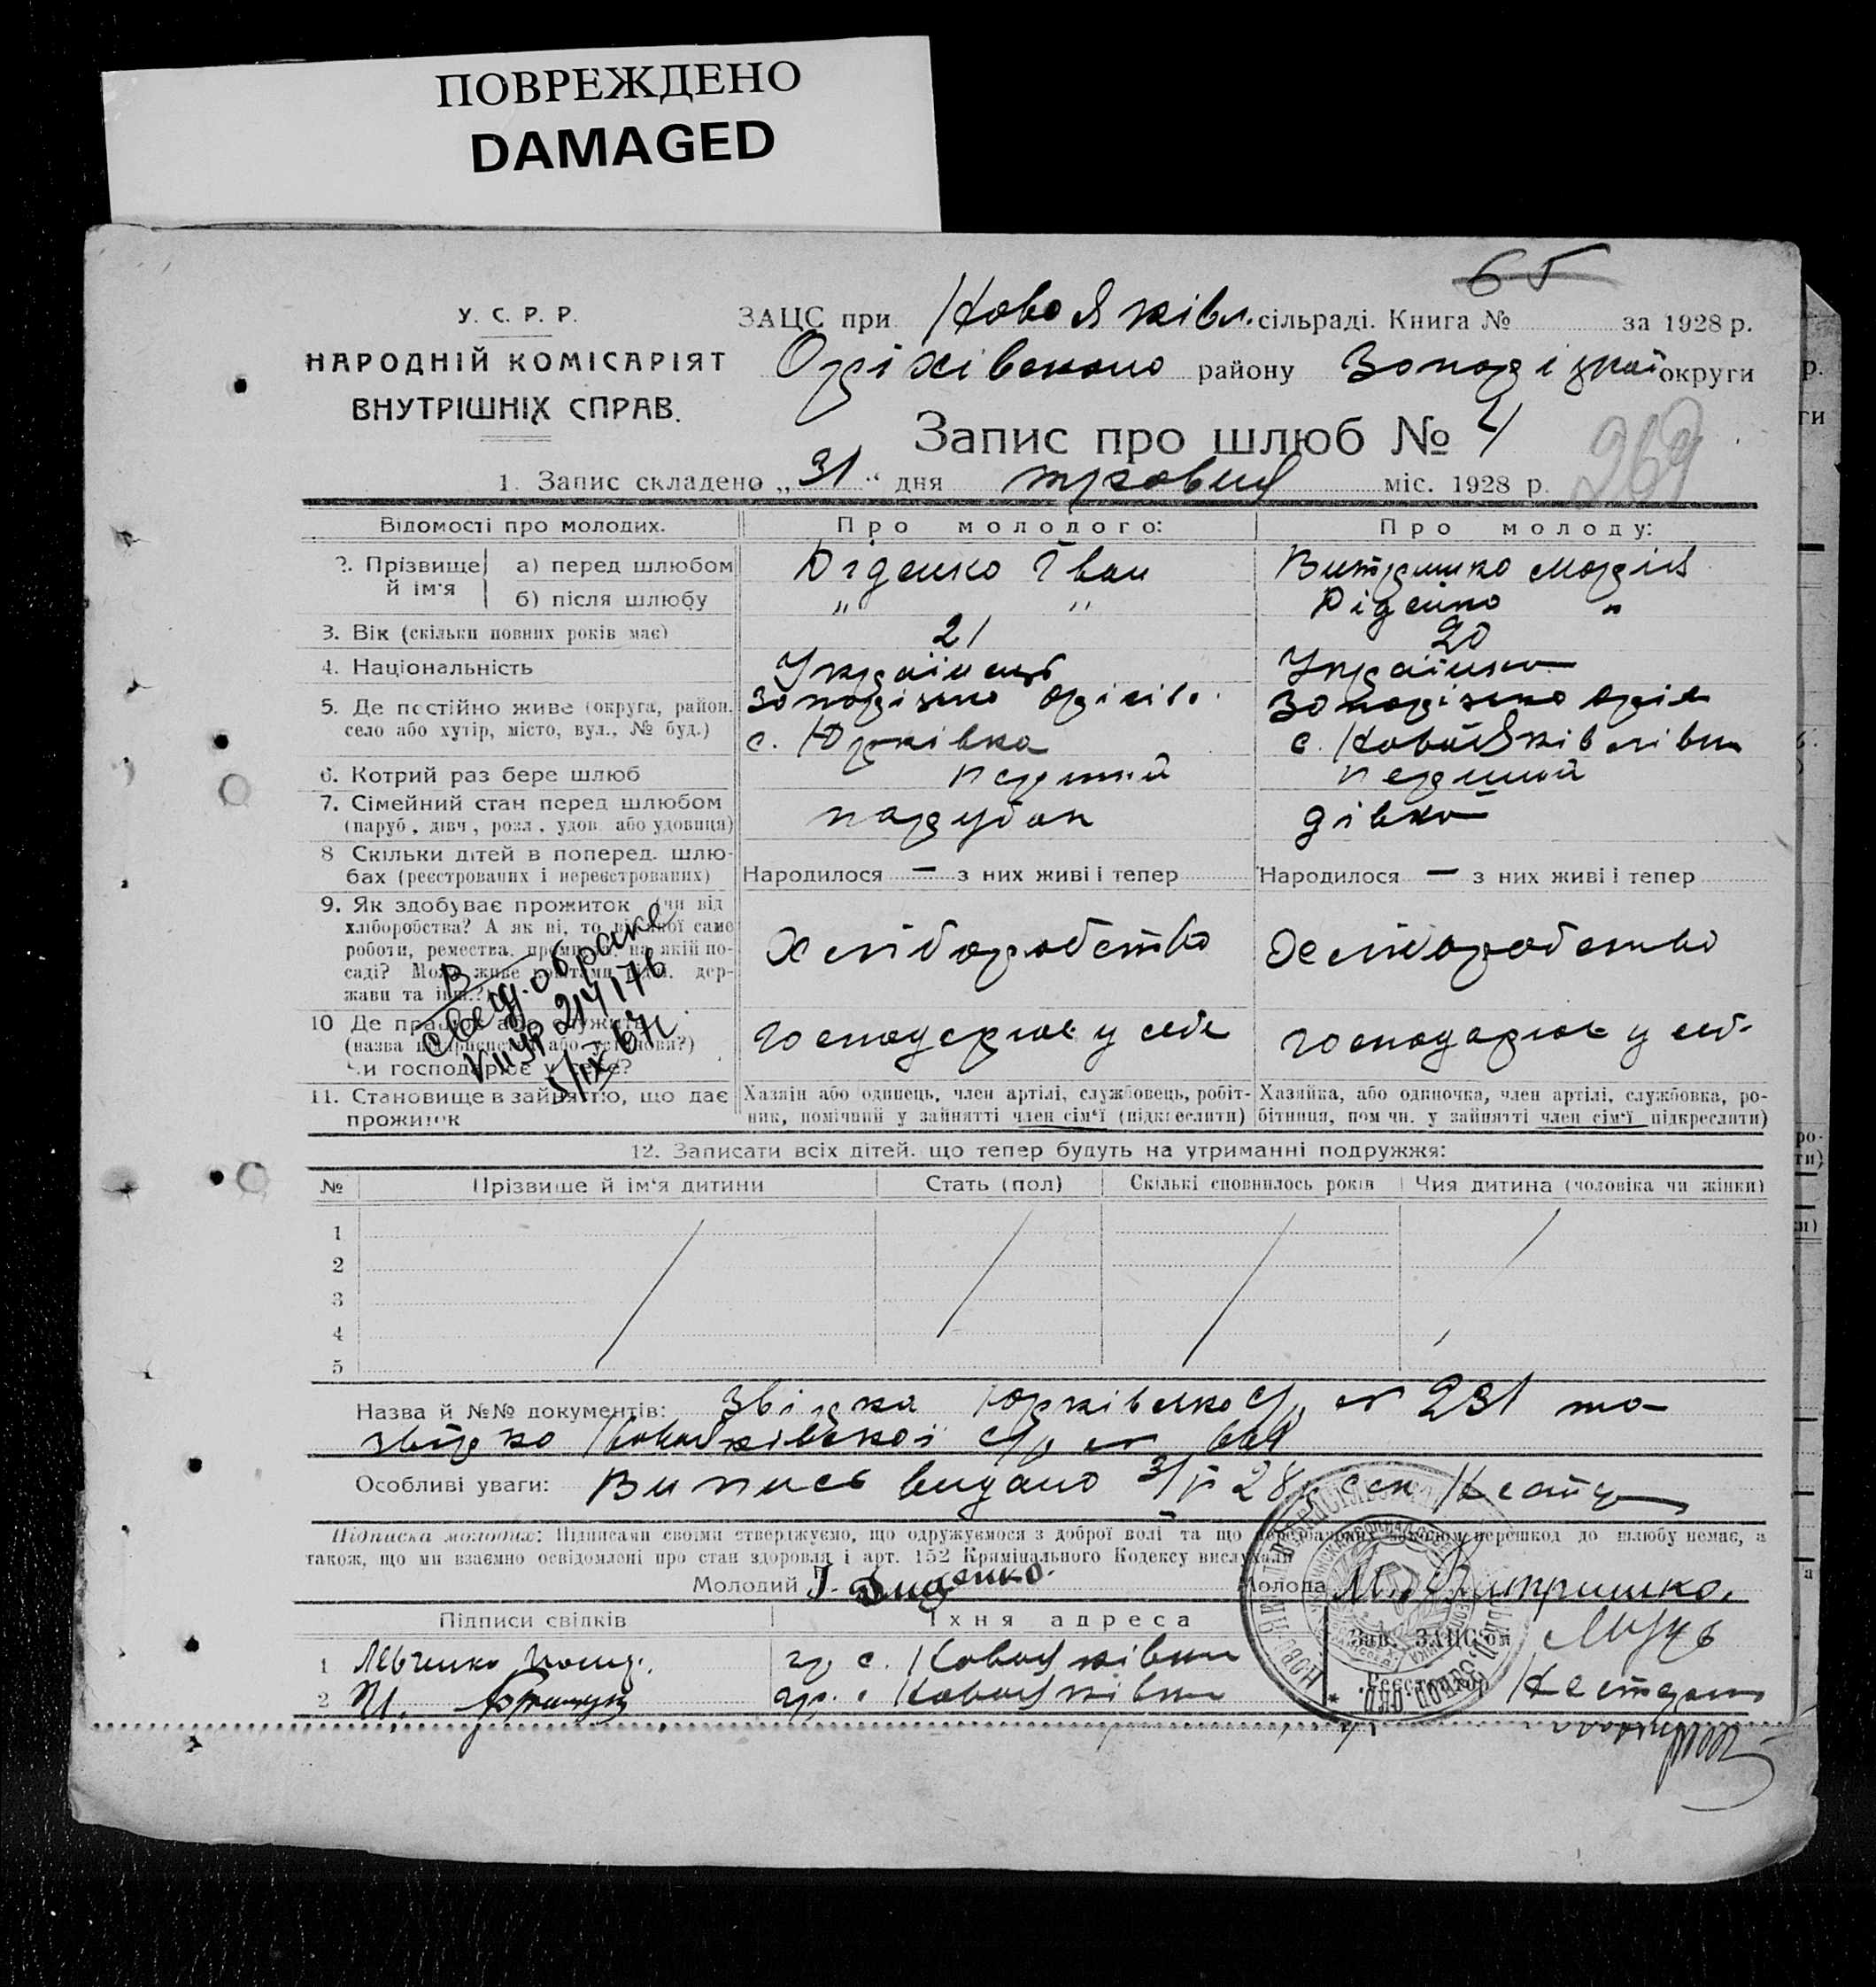 ПОВРЕЖДЕНО
DAMAGED
65
У. С. Р. Р.
НАРОДНІЙ КОМІСАРІЯТ
ВНУТРІШНІХ СПРАВ.
ЗАЦС при НовоЯківл. сільраді. Книга № за 1928 р.
Оріхівського району Запорізької округи
Запис про шлюб № 4
269
1. Запис складено „31“ дня травня міс. 1928 р.
Відомості про молодих. Про молодого: Про молоду:
2. Прізвище й ім'я
а) перед шлюбом Діденко Іван Витришко Марія
б) після шлюбу " " Діденко "
3. Вік (скільки повних років має) 21 20
4. Національність Українець Українка
5. Де постійно живе (округа, район, Запорізька Оріхів. Запорізька Оріх
село або хутір, місто, вул., № буд.) с. Юрківка с.
6. Котрий раз бере шлюб первий первий
7. Сімейний стан перед шлюбом парубок дівка
(паруб., дівч., розл., удов. або удовиця)
8 Скільки дітей в поперед. шлю-
бах (реєстрованих і нереєстрованих) Народилося — з них живі і тепер Народилося — з них живі і тепер
9. Як здобуває прожиток (чи від
хліборобства? А як ні, то від якої саме
роботи, ремества, промислу, на якій по-
саді? Може живе коштами рідні, дер-
жави та інш.?)
Хліборобство Хліборобство
10 Де працює або служить
(назва підприємства або установи?)
чи господарює у себе?
господарює у себе господарює у себ.
В
свед. о браке
VII УР 214176
5/IX 67г.
11. Становище в зайняттю, що дає
прожиток
Хазяїн або одинець, член артілі, службовець, робіт-
ник, помічний у зайнятті член сім'ї (підкреслити)
Хазяйка, або одиночка, член артілі, службовка, ро-
бітниця, пом чн. у зайнятті член сім'ї підкреслити)
12. Записати всіх дітей, що тепер будуть на утриманні подружжя:
№ Прізвише й ім'я дитини Стать (пол) Скількі сповнилось років Чия дитина (чоловіка чи жінки)
1
2
3
4
5
Назва й №№ документів: звідка Юрківської с/р № 231 та
звідка с/р №
Особливі уваги: Випись видано 31/V 28 р. сек.
Підписка молодих: Підписами своїми стверджуємо, що одружуємося з доброї волі та що перешкод до шлюбу немає, а
також, що ми взаємно освідомлені про стан здоровля і арт. 152 Кримінального Кодексу вислухали
Молодий І. Диденко. Молода М. Витришко.
Підписи свідків Їхня адреса Зав. ЗАЦСом
1 Левченко гр. с.
2 гр. с.
Реєстратор